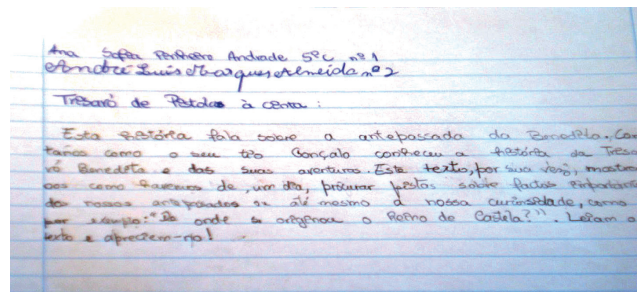 Ana Sofia Pinheiro Andrade 5ºC nº1
André Luís Marques Almeida nº2
de Pistolas à cinta :
Esta história fala sobre a antepassada da Benedita. Con
tamos como o seu tio Gonçalo conheceu a história da Triso
vó Benedeta e das suas aventuras. Este texto, por sua vez, mostra
nos como havemos de, um dia, procurar pistas sobre factos
dos nossos antepassados até mesmo a nossa curiosidade, como
por exemplo: "De onde se origenou o Reino de Castela?". Leiam o
texto e apreciem-no!